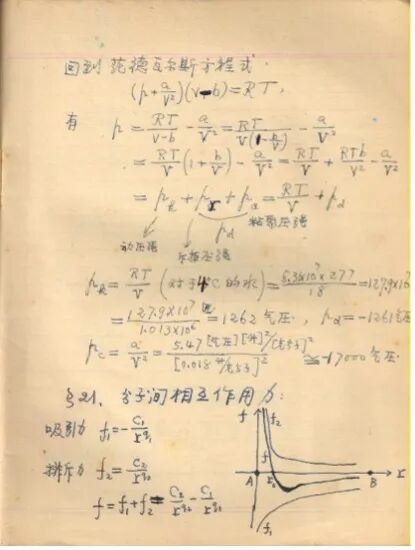 回到范德瓦尔斯方程式.
(p+a/V²)(V-b)=RT,
有 p = RT/(V-b) - a/V² = RT/(V(1-b/V)) - a/V²
= RT/V (1+b/V) - a/V² = RT/V + RTb/V² - a/V²
= p_k + p_r + p_c = RT/V + p_d
动压强 斥 压强 p_d 粘聚压强
p_k = RT/V (对于4°C的水) = 8.3×10⁷×277/18 = 127.9×10⁷
= 127.9×10⁷/1.013×10⁶ = 1262气压, p_d = -1261气压
p_c = a/V² = 5.47[气压][升]²/[克分子]²/[0.018升/克分子]² ≈ -17000气压
§21. 分子间相互作用力:
吸引力 f₁ = -C₁/r^q₁
排斥力 f₂ = C₂/r^q₂
f = f₁+f₂ = C₂/r^q₂ - C₁/r^q₁
f f₂
f
A r₀ B r
f₁